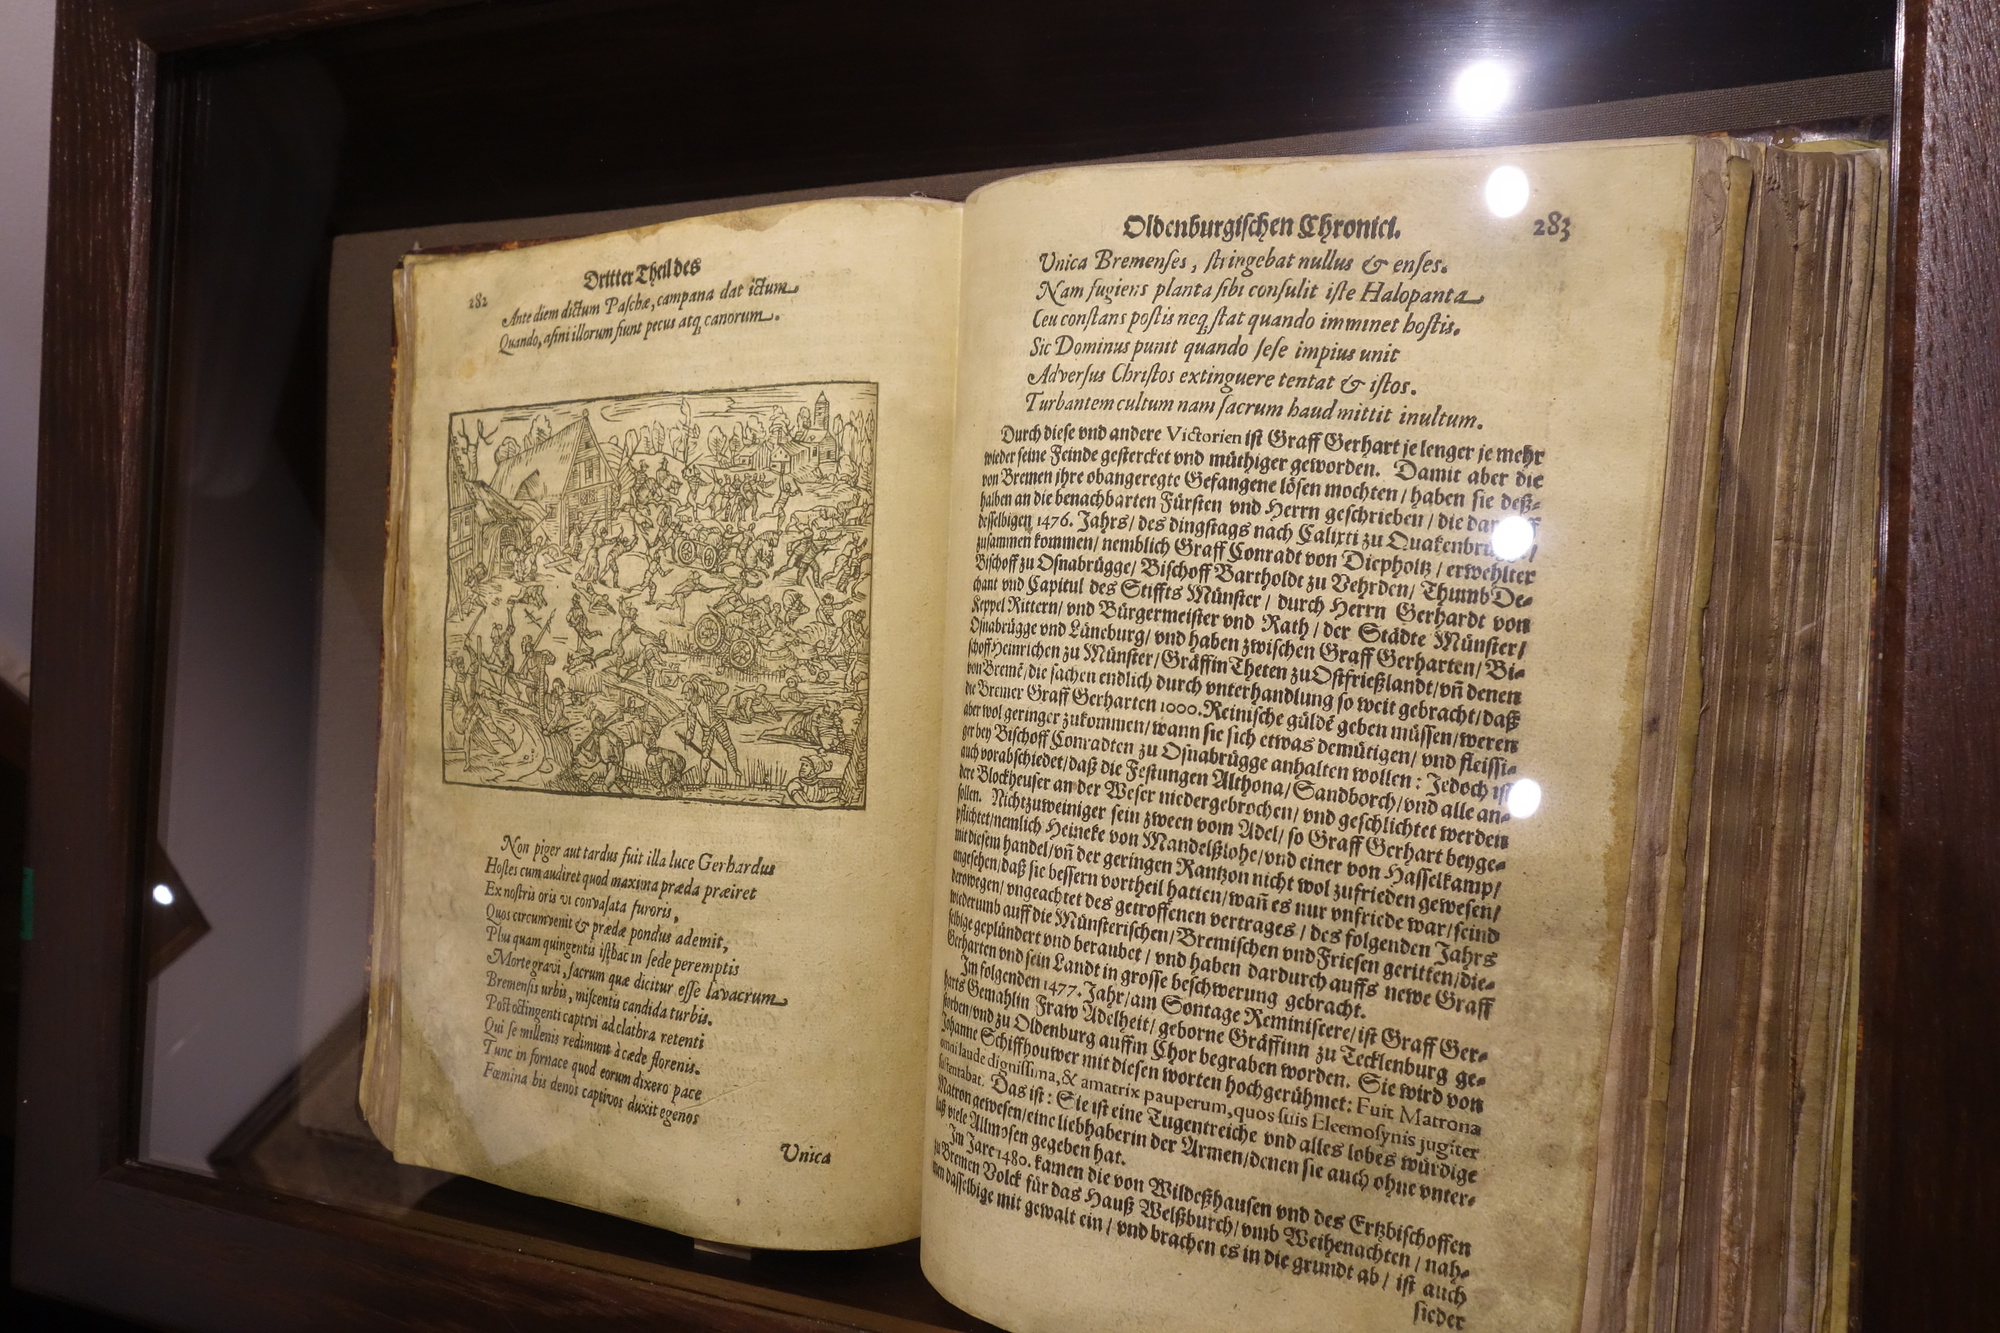 282
Dritter Theil des
Ante diem dictum Paschæ, campana dat ictum.
Quando, asini illorum fiunt pecus atq; canorum.
Non piger aut tardus fuit illa luce Gerhardus
Hostes cum audiret quod maxima præda præiret
Ex nostris oris vi convasata furoris,
Quos circumvenit & prædæ pondus ademit,
Plus quam quingentis isthac in sede peremptis
Morte gravi, sacrum quæ dicitur esse lavacrum
Bremensis urbis, miscentis candida turbis.
Post octingenti captivi ad clathra retenti
Qui se millenis redimunt à cæde florenis.
Tunc in fornace quod eorum dixero pace
Fœmina bis denos captivos duxit egenos
Unica
Oldenburgischen Chronici. 283
Unica Bremenses, stringebat nullus & enses.
Nam fugiens planta sibi consulit iste Halopanta
Ceu constans postis neq; stat quando imminet hostis.
Sic Dominus punit quando sese impius unit
Adversus Christos extinguere tentat & istos.
Turbantem cultum nam sacrum haud mittit inultum.
Durch diese vnd andere Victorien ist Graff Gerhart je lenger je mehr
wieder seine Feinde gestercket vnd müthiger geworden. Damit aber die
von Bremen jhre obangeregte Gefangene lösen mochten / haben sie deß-
halben an die benachbarten Fürsten vnd Herrn geschrieben / die
desselbigen 1476. Jahrs / des dingstags nach Calixti zu
zusammen kommen / nemblich Graff Conradt von Diepholtz / erwehlter
Bischoff zu Osnabrügge / Bischoff Bartholdt zu Vehrden / Thumb De-
chant vnd Capitul des Stiffts Münster / durch Herrn Gerhardt von
Keppel Rittern / vnd Bürgermeister vnd Rath / der Städte Münster /
Osnabrügge vnd Lüneburg / vnd haben zwischen Graff Gerharten / Bi-
schoff Heinrichen zu Münster / Gräffin Theten zu Ostfrießlandt / vñ denen
von Bremē / die sachen endlich durch vnterhandlung so weit gebracht / daß
die Bremer Graff Gerharten 1000. Reinische güldē geben müssen / weren
aber wol geringer zukommen / wann sie sich etwas demütigen / vnd fleissi-
ger bey Bischoff Conradten zu Osnabrügge anhalten wollen : Jedoch ist
auch vorabschiedet / daß die Festungen Althona / Sandborch / vnd alle an-
dere Blockheuser an der Weser niedergebrochen / vnd geschlichtet werden
sollen. Nichtzuweiniger sein zween vom Adel / so Graff Gerhart beyge-
pflichtet / nemlich Heineke von Mandelßlohe / vnd einer von Hasselkamp /
mit diesem handel / vñ der geringen Rantzon nicht wol zufrieden gewesen /
angesehen / daß sie bessern vortheil hatten / wañ es nur vnfriede war / seind
derowegen / vngeachtet des getroffenen vertrages / des folgenden Jahrs
wiederumb auff die Münsterischen / Bremischen vnd Friesen geritten / die-
selbige geplündert vnd beraubet / vnd haben dardurch auffs newe Graff
Gerharten vnd sein Landt in grosse beschwerung gebracht.
Im folgenden 1477. Jahr / am Sontage Reminiscere / ist Graff Ger-
harts Gemahlin Fraw Adelheit / geborne Gräffinn zu Tecklenburg ge-
storben / vnd zu Oldenburg auffm Chor begraben worden. Sie wird von
Johanne Schiffhouwer mit diesen worten hochgerühmet: Fuit Matrona
omni laude dignissima, & amatrix pauperum, quos suis Eleemosynis jugiter
sustentabat. Das ist : Sie ist eine Tugentreiche vnd alles lobes würdige
Matron gewesen / eine liebhaberin der Armen / denen sie auch ohne vnter-
laß viele Allmosen gegeben hat.
Im Jare 1480. kamen die von Wildeßhausen vnd des Ertzbischoffen
zu Bremen Volck für das Hauß Welßburch / vmb Weihenachten / nah-
men dasselbige mit gewalt ein / vnd brachen es in die grundt ab / ist auch
sieder